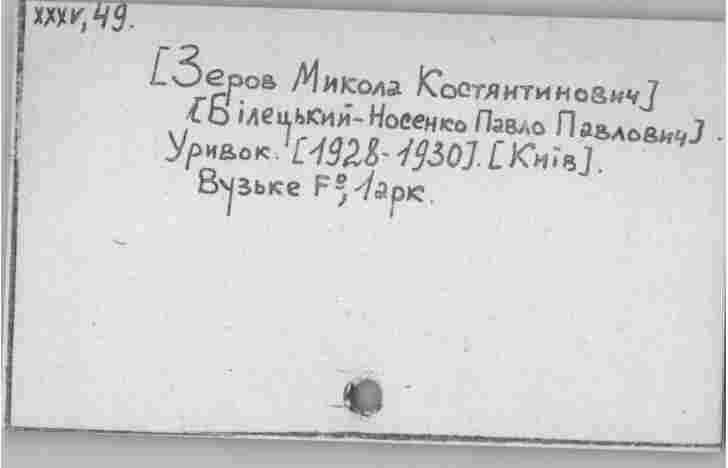 XXXV, 49.
[Зеров Микола Костянтинович]
[Білецький-Носенко Павло Павлович].
Уривок. [1928-1930]. [Київ].
Вузьке Fº, 1 арк.